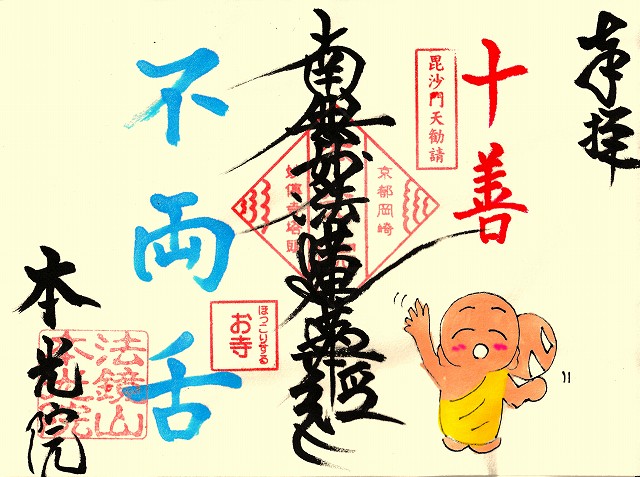 奉拝
十善
毘沙門天勧請
京都岡崎
南無妙法蓮華経
妙傳寺塔頭
ほっこりする
お寺
不両舌
本光院
法鏡山
本光院